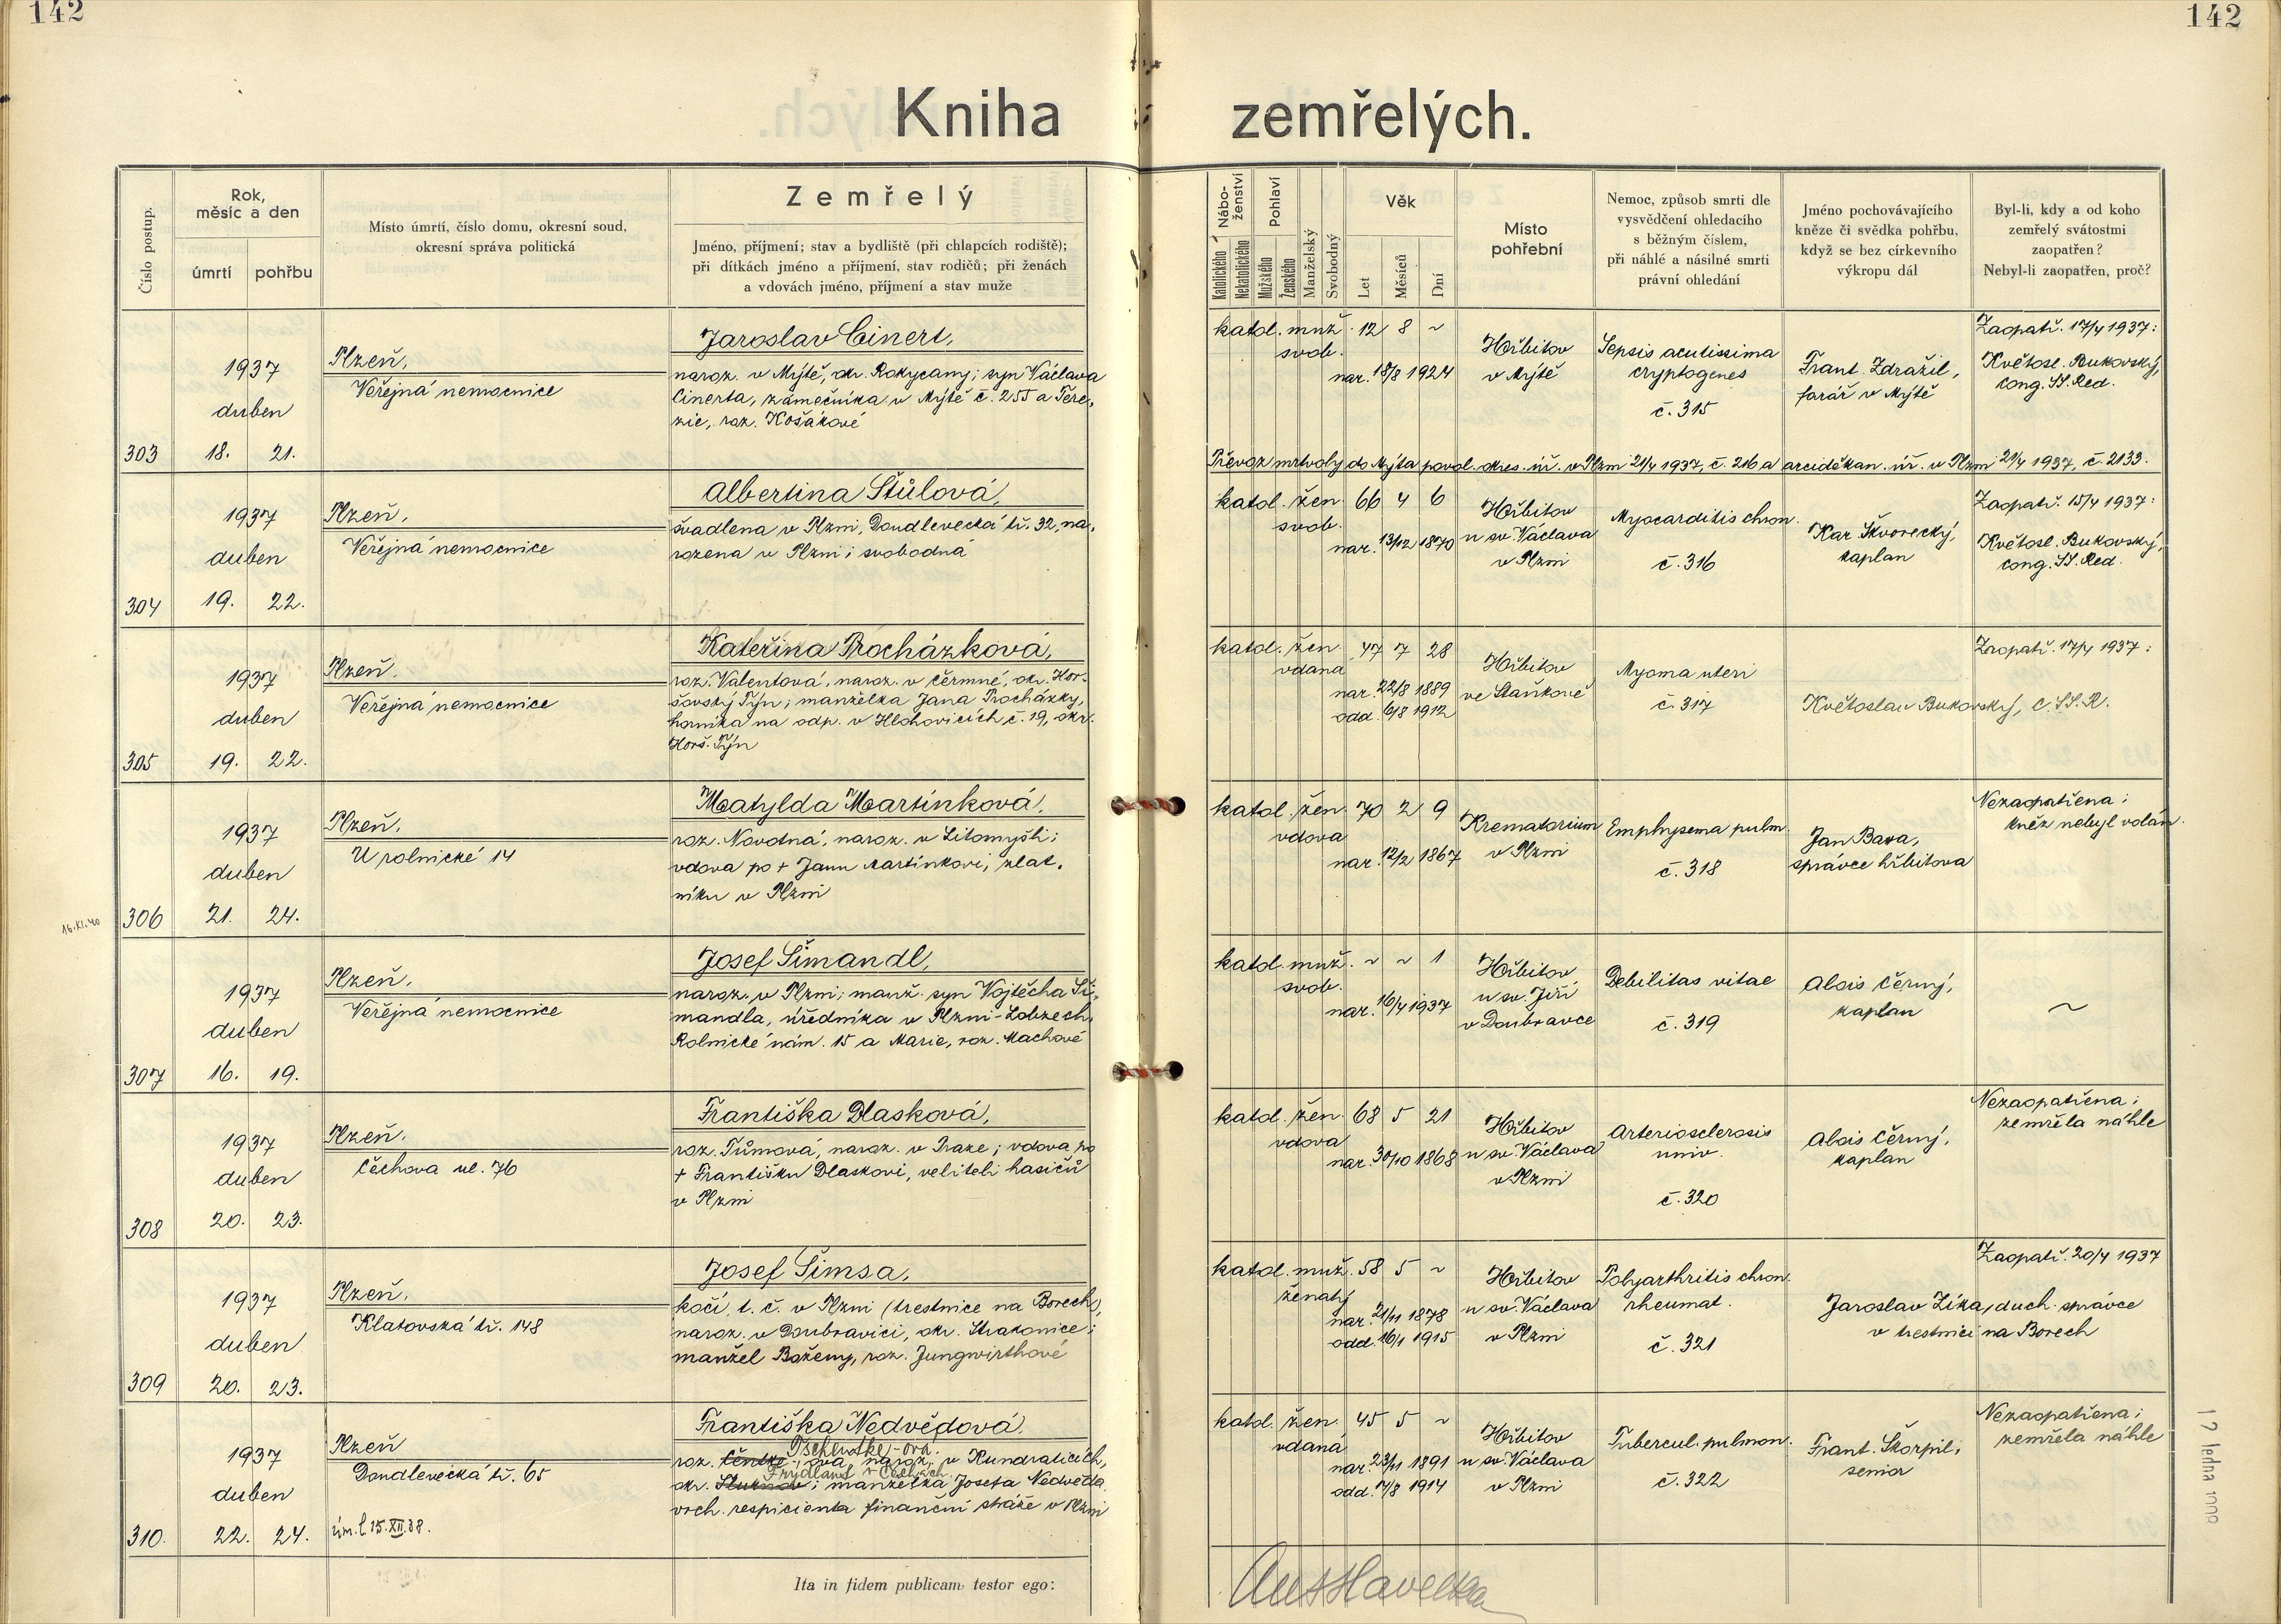 142
142
Kniha zemřelých.
Číslo postup.
Rok, měsíc a den
úmrtí
pohřbu
Místo úmrtí, číslo domu, okresní soud,
okresní správa politická
Zemřelý
Jméno, příjmení; stav a bydliště (při chlapcích rodiště);
při dítkách jméno a příjmení, stav rodičů; při ženách
a vdovách jméno, příjmení a stav muže
Nábo-
ženství
Katolického
Nekatolického
Pohlaví
Mužského
Ženského
Manželský
Svobodný
Věk
Let
Měsíců
Dní
Místo
pohřební
Nemoc, způsob smrti dle
vysvědčení ohledacího
s běžným číslem,
při náhlé a násilné smrti
právní ohledání
Jméno pochovávajícího
kněze či svědka pohřbu,
když se bez církevního
výkropu dál
Byl-li, kdy a od koho
zemřelý svátostmi
zaopatřen?
Nebyl-li zaopatřen, proč?
303
1937
duben
18. 21.
Plzeň,
Veřejná nemocnice
Jaroslav Cinert,
naroz. v Mýtě, okr. Rokycany; syn Václava
Cinerta, zámečníka v Mýtě č. 255 a Tere-
zie, roz. Košákové
katol. muž. 12 8 ~
svob.
nar. 18/8 1924
Hřbitov
v Mýtě
Sepsis acutissima
cryptogenes
č. 315
Frant. Zdražil,
farář v Mýtě
Zaopatř. 17/4 1937:
Květosl. Bukovský,
cong. SS. Red.
Převoz mrtvoly do Mýta povol. okres. úř. v Plzni 21/4 1937, č. 216 a arciděkan. úř. v Plzni 21/4 1937, č. 2133.
304
1937
duben
19. 22.
Plzeň,
Veřejná nemocnice
Albertina Štůlová,
švadlena v Plzni, Doudlevecká tř. 32, na-
rozena v Plzni; svobodná
katol. žen. 66 4 6
svob.
nar. 13/12 1870
Hřbitov
u sv. Václava
v Plzni
Myocarditis chron.
č. 316
Kar. Škvorecký,
kaplan
Zaopatř. 15/4 1937:
Květosl. Bukovský,
cong. SS. Red.
305
1937
duben
19. 22.
Plzeň,
Veřejná nemocnice
Kateřina Procházková,
roz. Valentová, naroz. v Čermné, okr. Hor-
šovský Týn; manželka Jana Procházky,
horníka na odp. v Hlohovicích č. 19, okr.
Horš. Týn
katol. žen. 47 7 28
vdaná
nar. 22/8 1889
odd. 6/8 1912
Hřbitov
ve Staňkově
Myoma uteri
č. 317
Květoslav Bukovský, C. SS. R.
Zaopatř. 17/4 1937:
306
1937
duben
21. 24.
16.XI.40
Plzeň,
U rolnické 14
Matylda Martínková,
roz. Novotná, naroz. v Litomyšli;
vdova po + Janu Martínkovi, zlat-
níku v Plzni
katol. žen. 70 2 9
vdova
nar. 12/2 1867
Krematorium
v Plzni
Emphysema pulm.
č. 318
Jan Bara,
správce hřbitova
Nezaopatřena;
kněz nebyl volán.
307
1937
duben
16. 19.
Plzeň,
Veřejná nemocnice
Josef Šimandl,
naroz. v Plzni; manž. syn Vojtěcha Ši-
mandla, úředníka v Plzni-Lobzech,
Rolnické nám. 15 a Marie, roz. Machové
katol. muž. ~ ~ 1
svob.
nar. 16/4 1937
Hřbitov
u sv. Jiří
v Doubravce
Debilitas vitae
č. 319
Alois Černý,
kaplan
~
308
1937
duben
20. 23.
Plzeň,
Čechova ul. 76
Františka Dlasková,
roz. Tůmová, naroz. v Praze; vdova po
+ Františku Dlaskovi, veliteli hasičů
v Plzni
katol. žen. 68 5 21
vdova
nar. 30/10 1868
Hřbitov
u sv. Václava
v Plzni
Arteriosclerosis
univ.
č. 320
Alois Černý,
kaplan
Nezaopatřena;
zemřela náhle
309
1937
duben
20. 23.
Plzeň,
Klatovská tř. 148
Josef Šimsa,
kočí, t. č. v Plzni (trestnice na Borech),
naroz. v Doubravici, okr. Strakonice;
manžel Boženy, roz. Jungwirthové
katol. muž. 58 5 ~
ženatý
nar. 21/11 1878
odd. 16/1 1915
Hřbitov
u sv. Václava
v Plzni
Polyarthritis chron.
rheumat.
č. 321
Jaroslav Zíka, duch. správce
v trestnici na Borech
Zaopatř. 20/4 1937
310.
1937
duben
22. 24.
Plzeň
Doudlevecká tř. 65
úm. l. 15.XII.38.
Františka Nedvědová,
Tschentke-ová.
roz. Čentke-ová, naroz. v Kunraticích,
Frýdlant v Čechách
okr. ; manželka Josefa Nedvěda,
vrch. respicienta finanční stráže v Plzni
katol. žen. 45 5 ~
vdaná
nar. 23/11 1891
odd. 17/8 1914
Hřbitov
u sv. Václava
v Plzni
Tubercul. pulmon.
č. 322
Frant. Škorpil,
senior
Nezaopatřena;
zemřela náhle
Ita in fidem publicam testor ego: